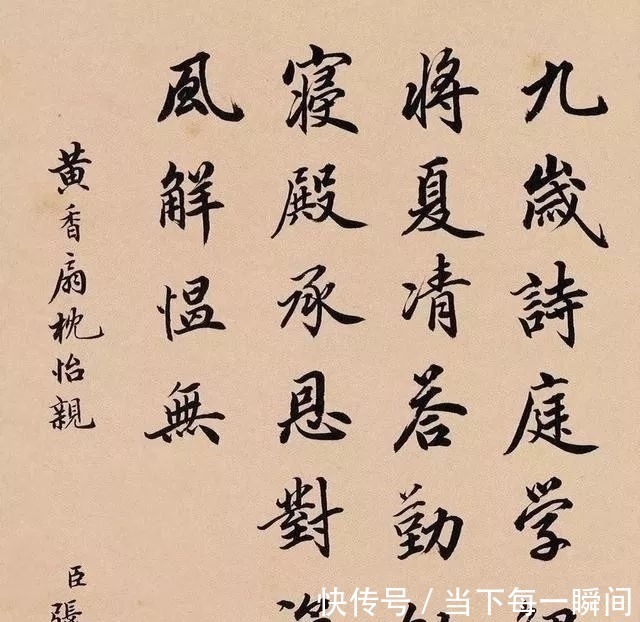 九歲詩庭學
將夏凊答勤
寢殿承恩對
風解愠無
黃香扇枕怡親
臣張
快传号/当下每一瞬间